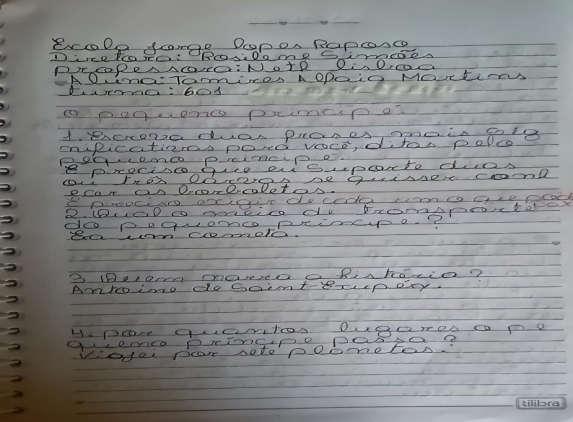 Escola Jorge Lopes Raposo
Diretora: Rosilene Simões
professora: Nath Lisboa
Aluna: Tamires Martins
Turma: 601
O pequeno principe:
1. Escreva duas frases mais sig
nificativas para você, ditas pelo
pequeno principe.
É preciso que eu suporte duas
ou três larvas se quisser conh
ecer as borboletas.
É preciso exigir de cada um o que
2. Qual o meio de transporte
do pequeno principe?
Era um cometa.
3. Quem narra a história?
Antoine de Saint Exupéry.
4. por quantos lugares o pe
queno principe passa?
Viajei por sete planetas.
tilibra